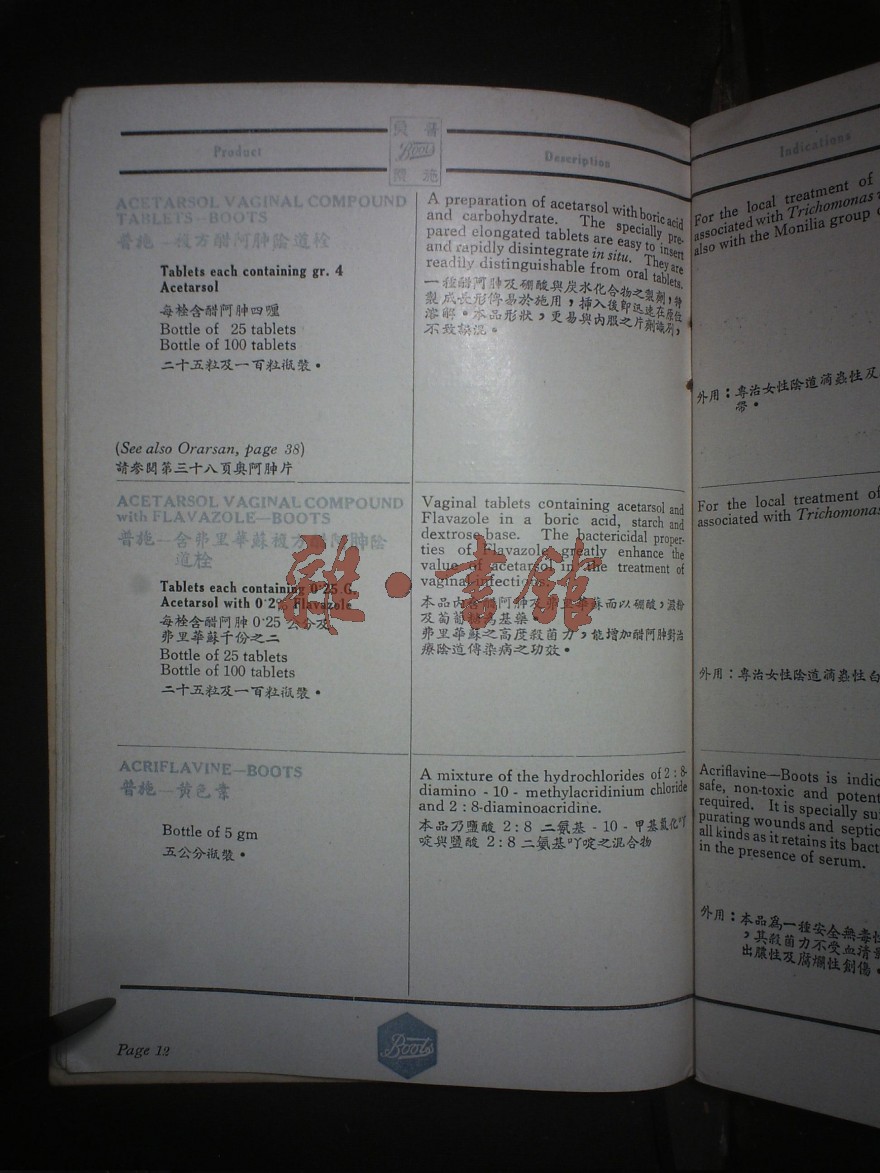 Product
Boots
Description
Indications
ACETARSOL VAGINAL COMPOUND
TABLETS—BOOTS
普施—複方醋阿肿陰道栓
Tablets each containing gr. 4
Acetarsol
每栓含醋阿肿四喱
Bottle of 25 tablets
Bottle of 100 tablets
二十五粒及一百粒瓶裝。
(See also Orarsan, page 38)
請參閱第三十八頁奥阿肿片
A preparation of acetarsol with boric acid
and carbohydrate. The specially pre-
pared elongated tablets are easy to insert
and rapidly disintegrate in situ. They are
readily distinguishable from oral tablets.
一種醋阿肿及硼酸與炭水化合物之製劑，特
製成長形俾易於施用，挿入後即迅速在原位
溶解。本品形狀，更易與內服之片劑識別，
不致誤混。
For the local treatment of
associated with Trichomonas
also with the Monilia group
外用：專治女性陰道滴蟲性及
帶。
ACETARSOL VAGINAL COMPOUND
with FLAVAZOLE—BOOTS
普施—含弗里華蘇複方醋阿肿陰
道栓
Tablets each containing 0·25 G.
Acetarsol with 0·2% Flavazole
每栓含醋阿肿 0·25 公分及
弗里華蘇千份之二
Bottle of 25 tablets
Bottle of 100 tablets
二十五粒及一百粒瓶裝。
Vaginal tablets containing acetarsol and
Flavazole in a boric acid, starch and
dextrose base. The bactericidal proper-
ties of Flavazole greatly enhance the
value of acetarsol in the treatment of
vaginal infections.
本品內含醋阿肿及弗里華蘇而以硼酸，澱粉
及葡萄糖為基藥。
弗里華蘇之高度殺菌力，能增加醋阿肿對治
療陰道傳染病之功效。
For the local treatment of
associated with Trichomonas
外用：專治女性陰道滴蟲性白
雜·書館
ACRIFLAVINE—BOOTS
普施—黄色素
Bottle of 5 gm
五公分瓶裝。
A mixture of the hydrochlorides of 2 : 8-
diamino - 10 - methylacridinium chloride
and 2 : 8-diaminoacridine.
本品乃鹽酸 2:8 二氨基 - 10 - 甲基氯化吖
啶與鹽酸 2:8 二氨基吖啶之混合物
Acriflavine—Boots is indic
safe, non-toxic and potent
required. It is specially su
purating wounds and septic
all kinds as it retains its bact
in the presence of serum.
外用：本品為一種安全無毒性
，其殺菌力不受血清
出膿性及腐爛性創傷。
Page 12
Boots